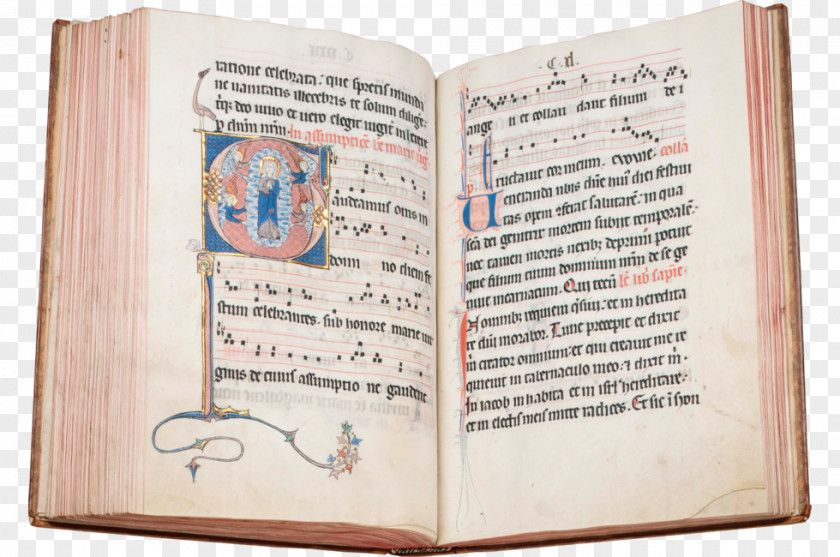 C. iiij
ratione celebrata. que spretis mundi
ne uanitatis illecebris te solum dilige
ret deo uiuo et uero elegit iugit inseruire
p dnm nrm. In assumptiōe be marie uig
audeamus om̄s in
domi no diem fe
stum celebrantes. sub honore marie uir
ginis de cuius assumptio ne gaudent
C. xl.
ange li et collau dant filium de i
p Eructauit cor meum. euouae. collā
Ueneranda nobis dn̄e huiꝰ diei festiui
tas opem ꝯferat salutarē. in qua
sc̄a dei genitrix mortem subiit temporalē.
nec tamen mortis nexibꝫ deprimi potuit
que filium tuum dominum nr̄m de se ge
nuit incarnatum. Qui tecū. le lib sapiē.
In omnibꝫ requiem quesiui. et in heredita
te dn̄i morabor. Tunc precepit et dixit
in creator omnium. et qui creauit me re
quieuit in tabernaculo meo. & dixit m̄.
In iacob inhabita et in isrl̄ hereditare.
et in electis meis mitte radices. Et sic ī syon